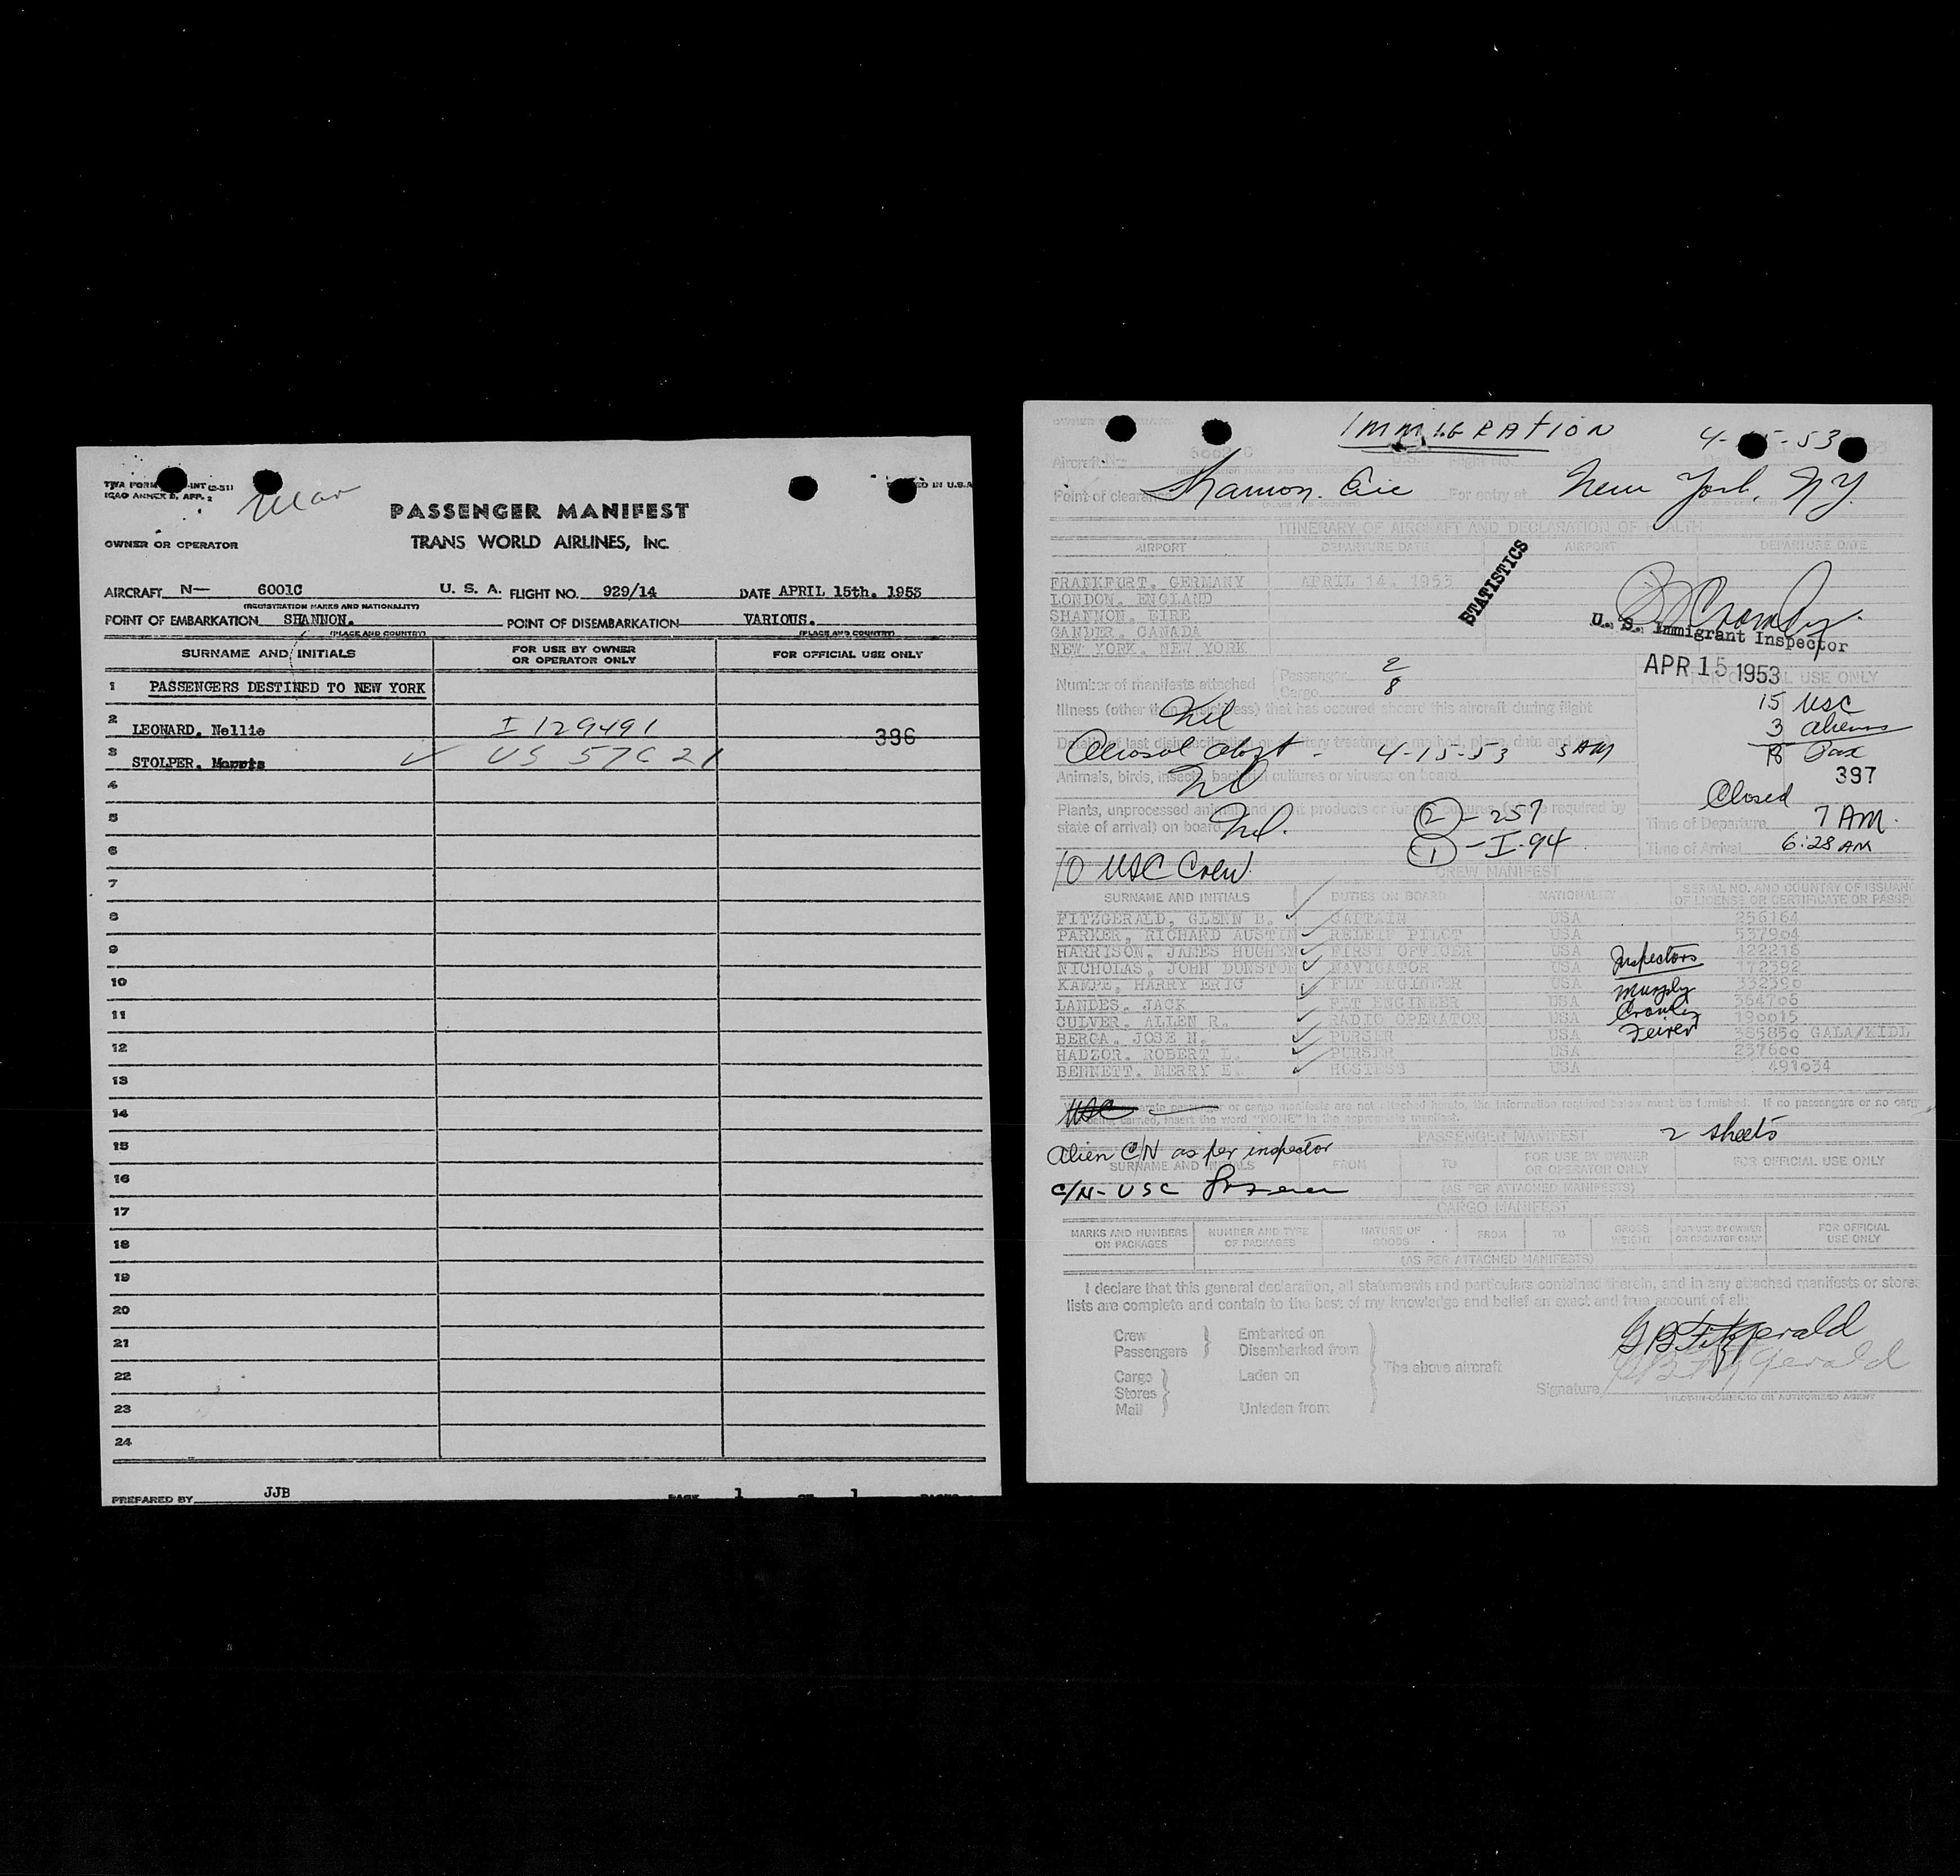 IMMIGRATION
PASSENGER MANIFEST
TRANS WORLD AIRLINES, INC.
OWNER OR OPERATOR
AIRCRAFT N— 6001C U. S. A. FLIGHT NO. 929/14 DATE APRIL 15th. 1953
(REGISTRATION MARKS AND NATIONALITY)
POINT OF EMBARKATION SHANNON. POINT OF DISEMBARKATION VARIOUS.
(PLACE AND COUNTRY) (PLACE AND COUNTRY)
SURNAME AND INITIALS FOR USE BY OWNER OR OPERATOR ONLY FOR OFFICIAL USE ONLY
1 PASSENGERS DESTINED TO NEW YORK
2 LEONARD. Nellie I 129491 396
3 STOLPER. Morris
4
5
6
7
8
9
10
11
12
13
14
15
16
17
18
19
20
21
22
23
24
PREPARED BY JJB PAGE 1 OF 1 PAGES
Aircraft N— U.S. Flight No.
Point of clearance Shannon. Eire For entry at New York, NY.
ITINERARY OF AIRCRAFT AND DECLARATION OF HEALTH
AIRPORT DEPARTURE DATE AIRPORT DEPARTURE DATE
FRANKFURT. GERMANY APRIL 14. 1953
LONDON. ENGLAND
SHANNON. EIRE
GANDER. CANADA
NEW YORK. NEW YORK
STATISTICS
U. S. Immigrant Inspector
APR 15 1953
Number of manifests attached Passenger 2
Cargo 8
FOR OFFICIAL USE ONLY
15 USC
3 aliens
18 Pax
397
Illness (other than airsickness) that has occured aboard this aircraft during flight
Nil
4-15-53 5 AM
Animals, birds, insects, bacterial cultures or viruses on board
Nil
Plants, unprocessed animal and plant products or fungus cultures, (where required by
state of arrival) on board Nil.
2 - 257
1 - I-94
Closed 7 AM.
Time of Departure
Time of Arrival 6:28 AM
10 USC Crew
CREW MANIFEST
SURNAME AND INITIALS DUTIES ON BOARD NATIONALITY SERIAL NO. AND COUNTRY OF ISSUANC
OF LICENSE OR CERTIFICATE OR PASSP
FITZGERALD, GLENN B. CAPTAIN USA 256164
PARKER, RICHARD AUSTIN RELEIF PILOT USA 537904
HARRISON, JAMES HUGHEY FIRST OFFICER USA 422216
NICHOLAS, JOHN DUNSTON NAVIGATOR USA 172392
KAMPE, HARRY ERIC FLT ENGINEER USA 332390
LANDES. JACK FLT ENGINEER USA 364706
CULVER. ALLEN R. RADIO OPERATOR USA 190015
BERGA. JOSE N. PURSER USA 385850 GALA/KIDL
HADZOR. ROBERT L. PURSER USA 257600
BENNETT. MERRY E. HOSTESS USA 491034
Inspectors
Murphy
Crowley
or cargo manifests are not attached hereto, the information required below must be furnished. If no passengers or no carg
being carried, insert the word "NONE" in the appropriate manifest.
PASSENGER MANIFEST 2 sheets
Alien C/N as per inspector
SURNAME AND INITIALS FROM TO FOR USE BY OWNER OR OPERATOR ONLY FOR OFFICIAL USE ONLY
C/N - USC
(AS PER ATTACHED MANIFESTS)
CARGO MANIFEST
MARKS AND NUMBERS ON PACKAGES NUMBER AND TYPE OF PACKAGES NATURE OF GOODS FROM TO GROSS WEIGHT FOR USE BY OWNER OR OPERATOR ONLY FOR OFFICIAL USE ONLY
(AS PER ATTACHED MANIFESTS)
I declare that this general declaration, all statements and particulars contained therein, and in any attached manifests or stores
lists are complete and contain to the best of my knowledge and belief an exact and true account of all:
Crew Embarked on
Passengers Disembarked from
The above aircraft
Cargo Laden on
Stores
Mail Unladen from
G B Fitzgerald
Signature G B Fitzgerald
PILOT-IN-COMMAND OR AUTHORIZED AGENT